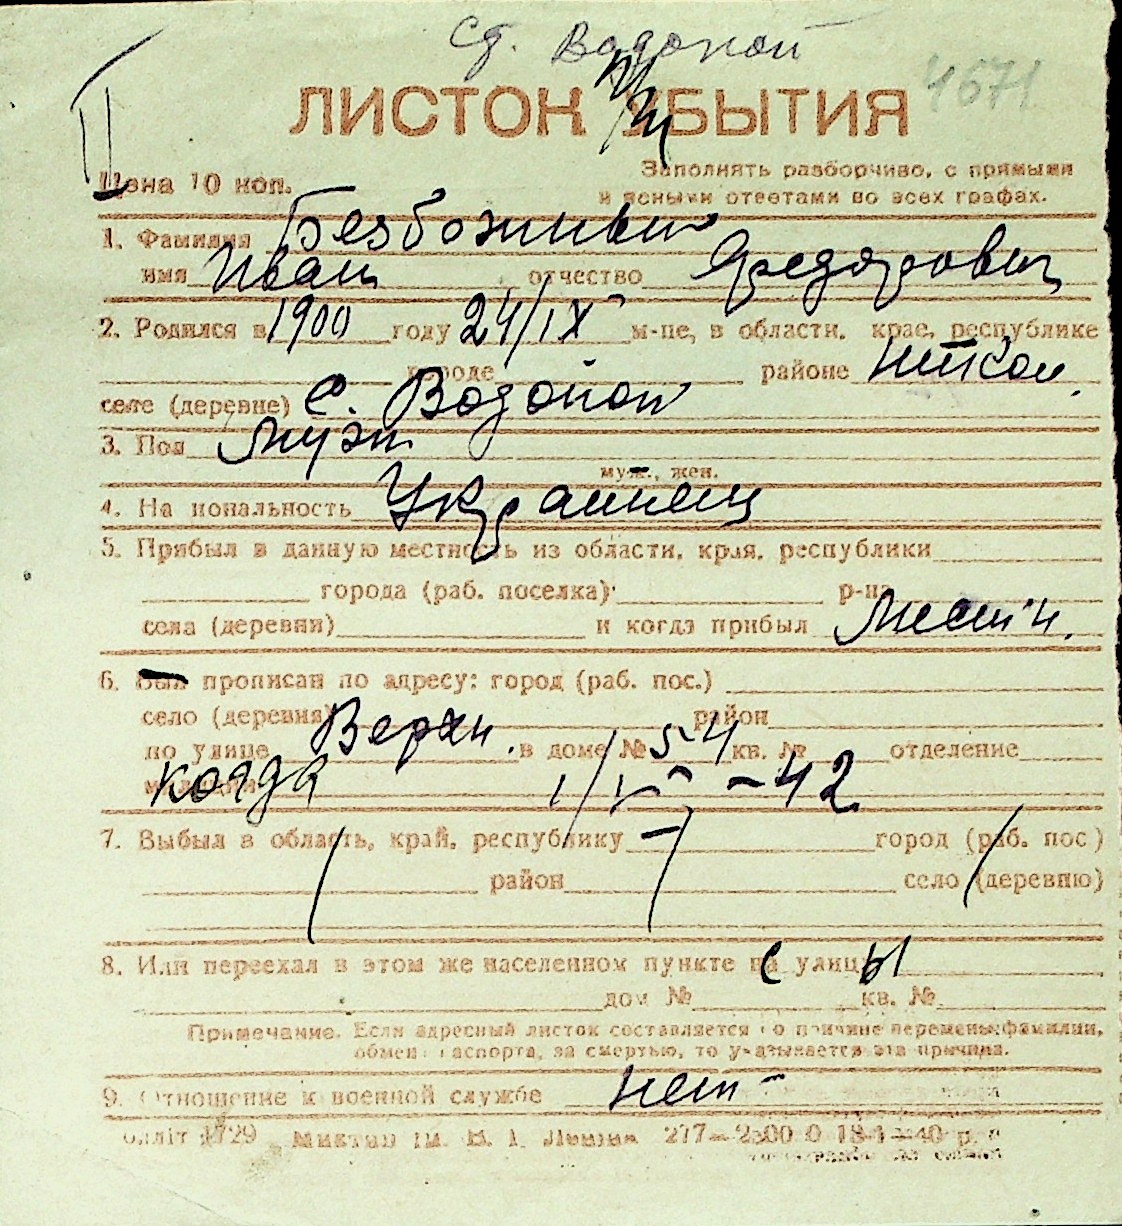 ст. Водопой
4671
II
ЛИСТОК УБЫТИЯ
Цена 10 коп.
Заполнять разборчиво, с прямыми
и ясными ответами во всех графах.
1. Фамилия Безбожный
имя Иван отчество Федорович
2. Родился в 1900 году 24/IX м-це, в области, крае, республике
городе районе Никол.
селе (деревне) с. Водопой
3. Пол муж
муж., жен.
4. На иональность Украинец
5. Прибыл в данную местность из области, края, республики
города (раб. поселка) р-на
села (деревни) и когда прибыл местн.
6. Был прописан по адресу: город (раб. пос.)
село (деревня) район
по улице Верхн. в доме № 54 кв. № отделение
милиции когда 1/V -42
7. Выбыл в область, край, республику город (раб. пос)
район село (деревню)
8. Или переехал в этом же населенном пункте с улицы
дом № кв. №
Примечание. Если адресный листок составляется по причине перемены фамилии,
обмен паспорта, за смертью, то указывается эта причина.
9. Отношение к военной службе нет
1729 277—2500 0